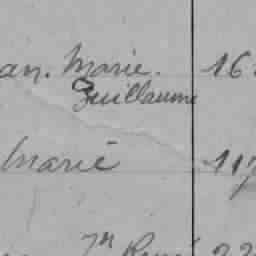 an. Marie. 16
Guillaume
Marie 117
René 22